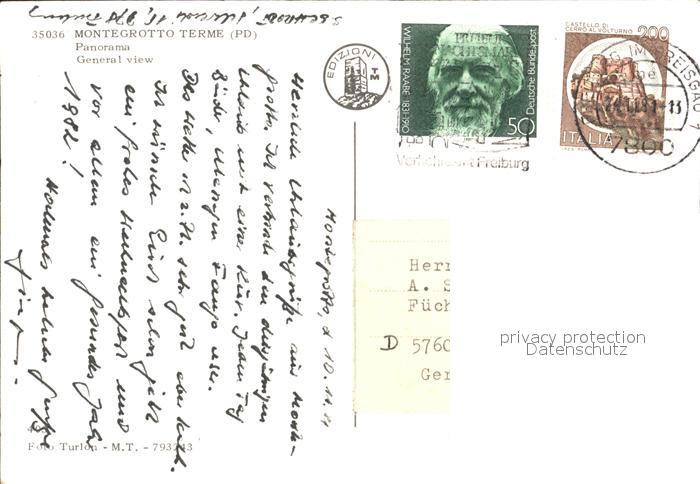 35036 MONTEGROTTO TERME (PD)
Panorama
General view
EDIZIONI
WILHELM RAABE 1831-1910
Deutsche Bundespost
50
CASTELLO DI
CERRO AL VOLTURNO
200
ITALIA
7800
Verkehrsamt Freiburg
Montegrotto, d 10.11.81
Herzliche Urlaubsgrüße aus Monte-
grotto. Ich verbringe den diesjährigen
Urlaub mit einer Kur. Jeden Tag
Bäder, Massagen Fango usw.
Das Wetter ist z.Zt. sehr gut aber kalt.
Ich wünsche Euch schon jetzt
ein frohes Weihnachtsfest und
vor allem ein gesundes Jahr
1982!
Nochmals Grüße
Herr
A. S
Füch
D 5760
Ger
privacy protection
Datenschutz
Foto Turlon - M.T. - 793